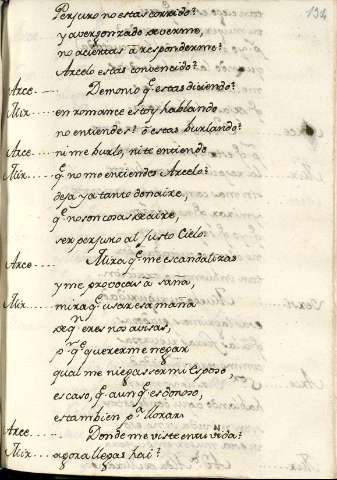 134
Perjuro no estas corrido?
y avergonzado de verme,
no aciertas à responderme?
Arcelo estas convencido?
Arce ---- Demonio q̃ estas diciendo?
Mix ---- en romance estoy hablando
no entiendes? ò estas burlando?
Arce ---- ni me burlo, ni te entiendo.
Mix ---- q̃ no me entiendes Arcelo?
deja ya tanto donaire,
q̃ no son cosas de aire,
ser perjuro al justo Cielo.
Arce ---- Mira q̃ me escandalizas
y me provocas à saña,
mira q̃ usar esa maña
de q.n eres nos avisas,
p.r q̃ quererme negar
qual me niegas ser mi Esposo,
es caso, q̃ aunq̃ es donoso,
es tambien p.a llorar.
Arce ---- Donde me viste en tu vida?
Mix ---- agora llegas hai?